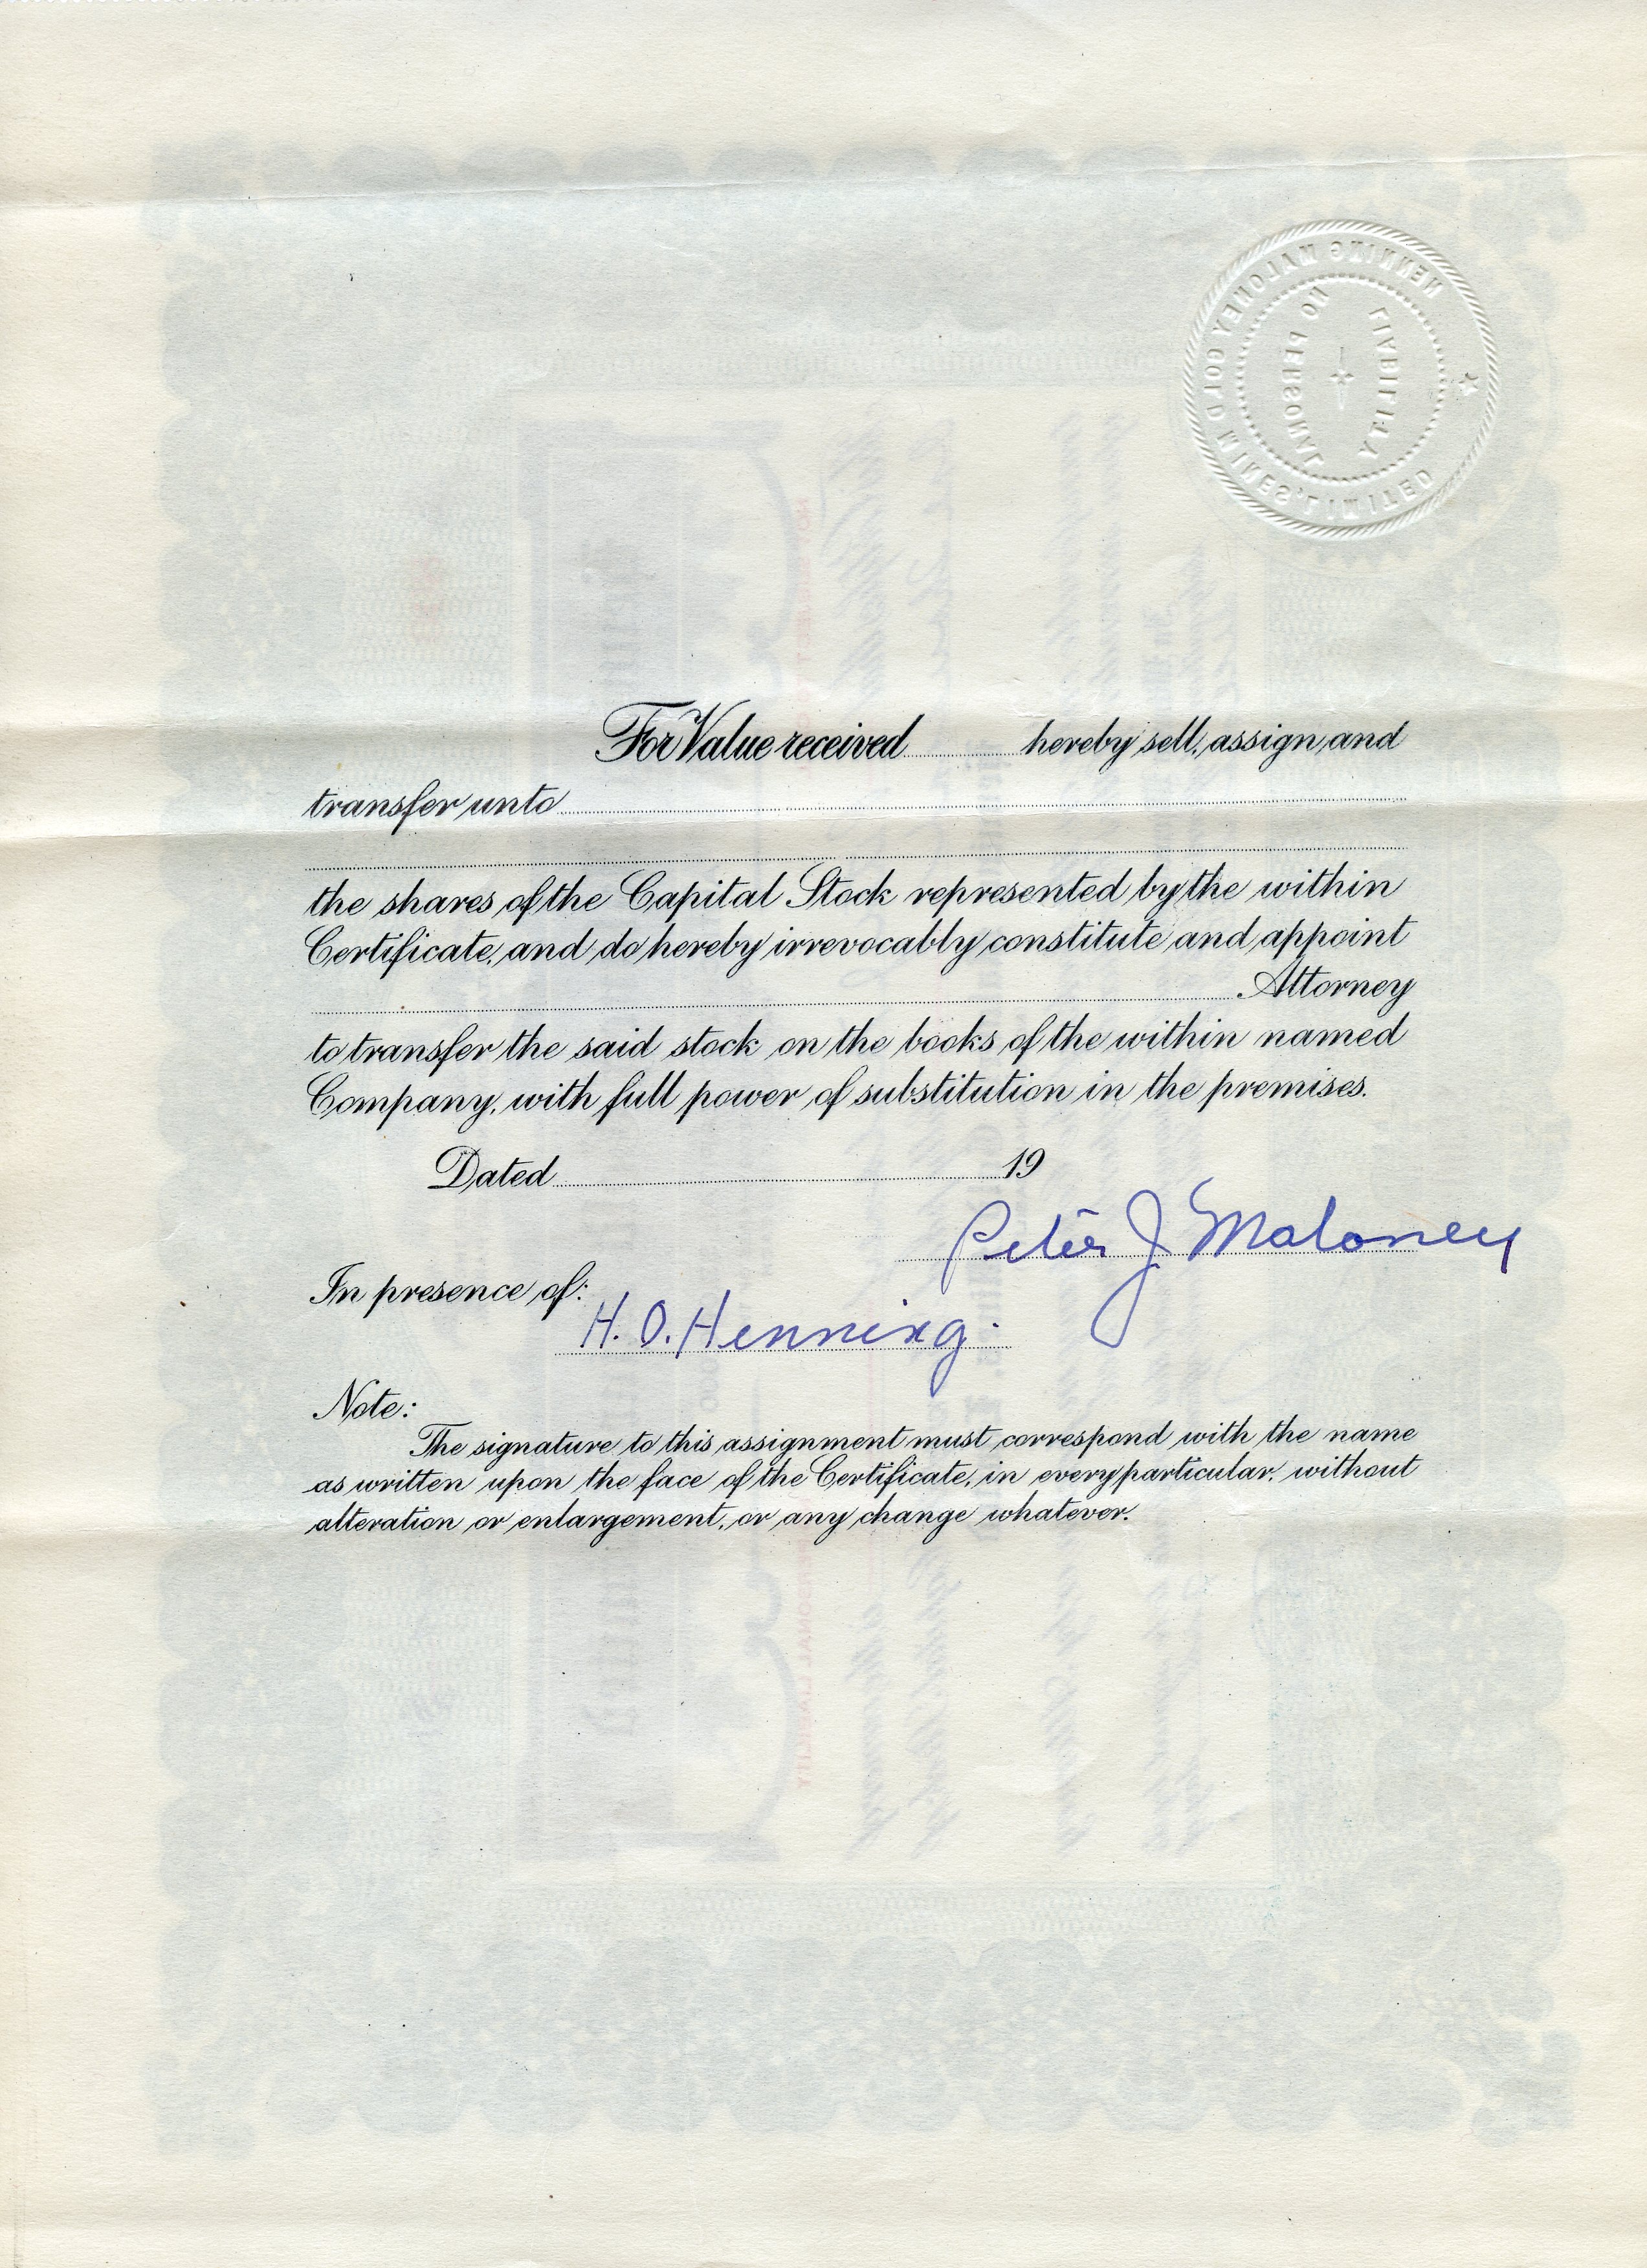 HENNING MALONEY GOLD MINES LIMITED
NO PERSONAL
LIABILITY
For Value received hereby sell, assign, and
transfer unto
the shares of the Capital Stock represented by the within
Certificate, and do hereby irrevocably constitute and appoint
Attorney
to transfer the said stock on the books of the within named
Company, with full power of substitution in the premises.
Dated 19
Peter J. Maloney
In presence of:
H. O. Henning.
Note:
The signature to this assignment must correspond with the name
as written upon the face of the Certificate, in every particular, without
alteration or enlargement, or any change whatever.